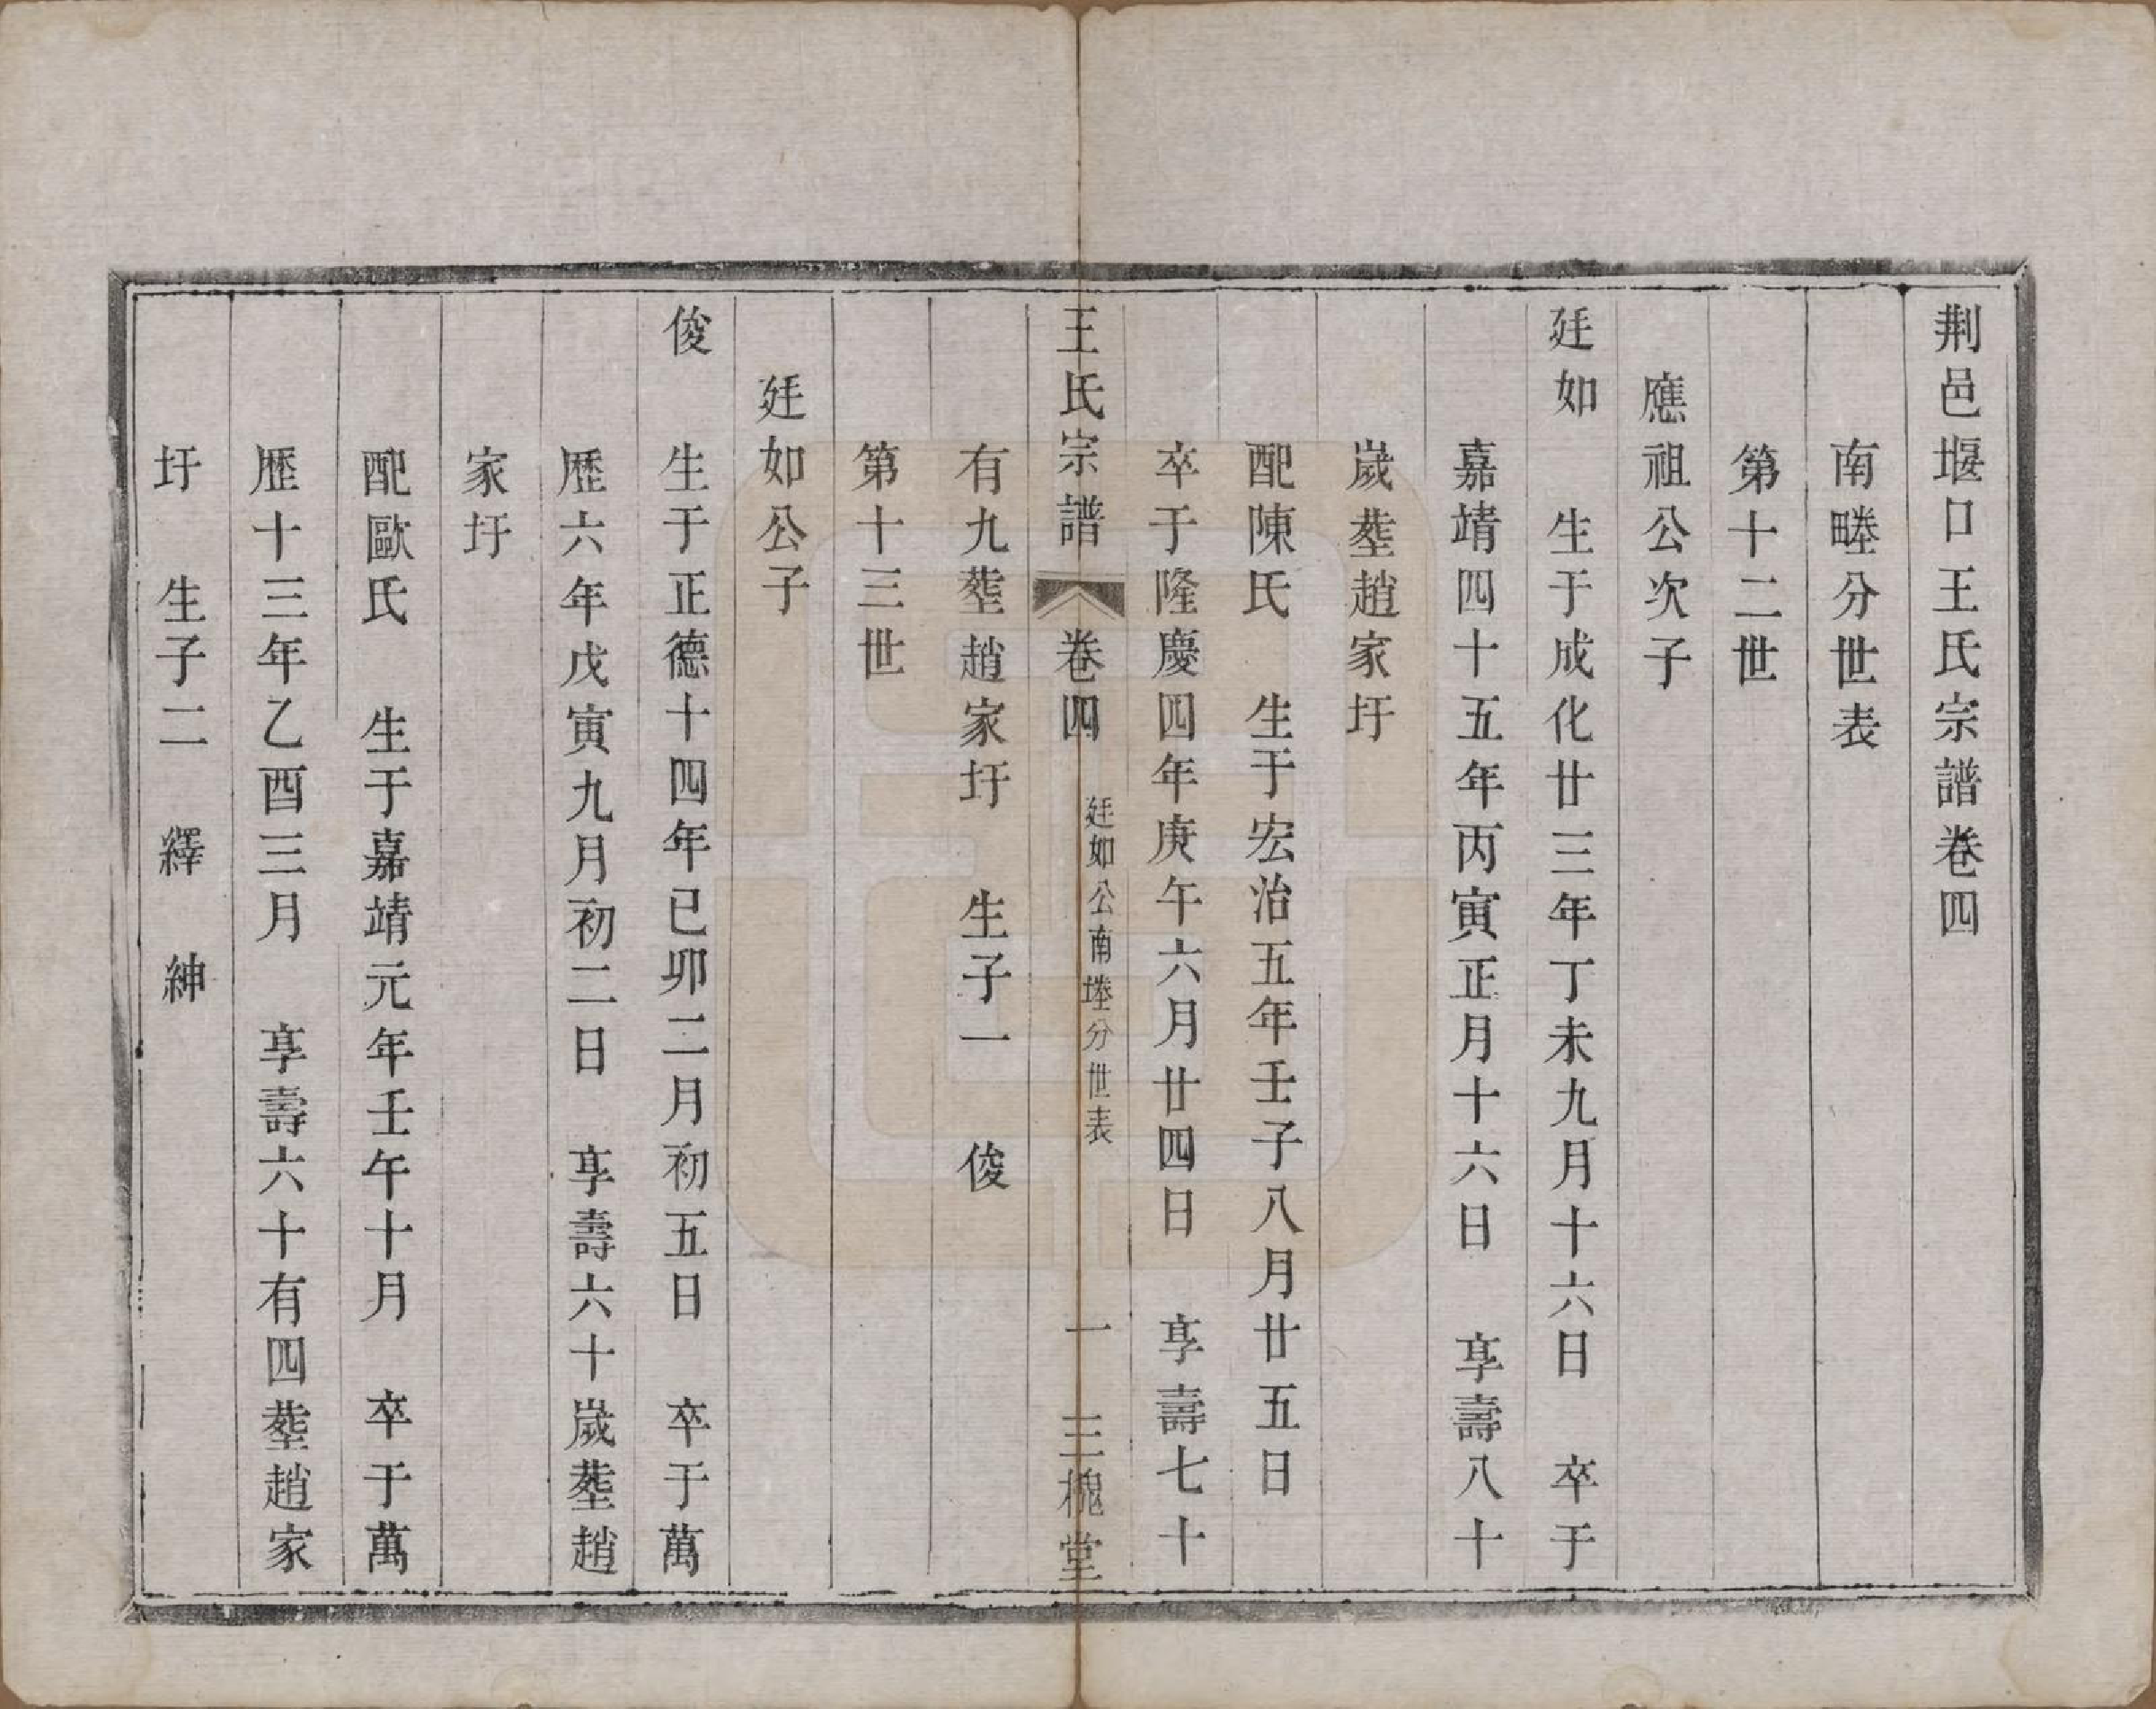 荆邑堰口王氏宗譜卷四
南㽥分世表
第十二世
應祖公次子
廷如 生于成化廿三年丁未九月十六日 卒于
嘉靖四十五年丙寅正月十六日 享壽八十
歲塟趙家圩
配陳氏 生于宏治五年壬子八月廿五日
卒于隆慶四年庚午六月廿四日 享壽七十
有九塟趙家圩 生子一 俊
王氏宗譜 卷四 廷如公南㙃分世表 一 三槐堂
第十三世
廷如公子
俊 生于正德十四年已卯二月初五日 卒于萬
歷六年戊寅九月初二日 享壽六十歲塟趙
家圩
配歐氏 生于嘉靖元年壬午十月 卒于萬
歷十三年乙酉三月 享壽六十有四塟趙家
圩 生子二 繹 紳